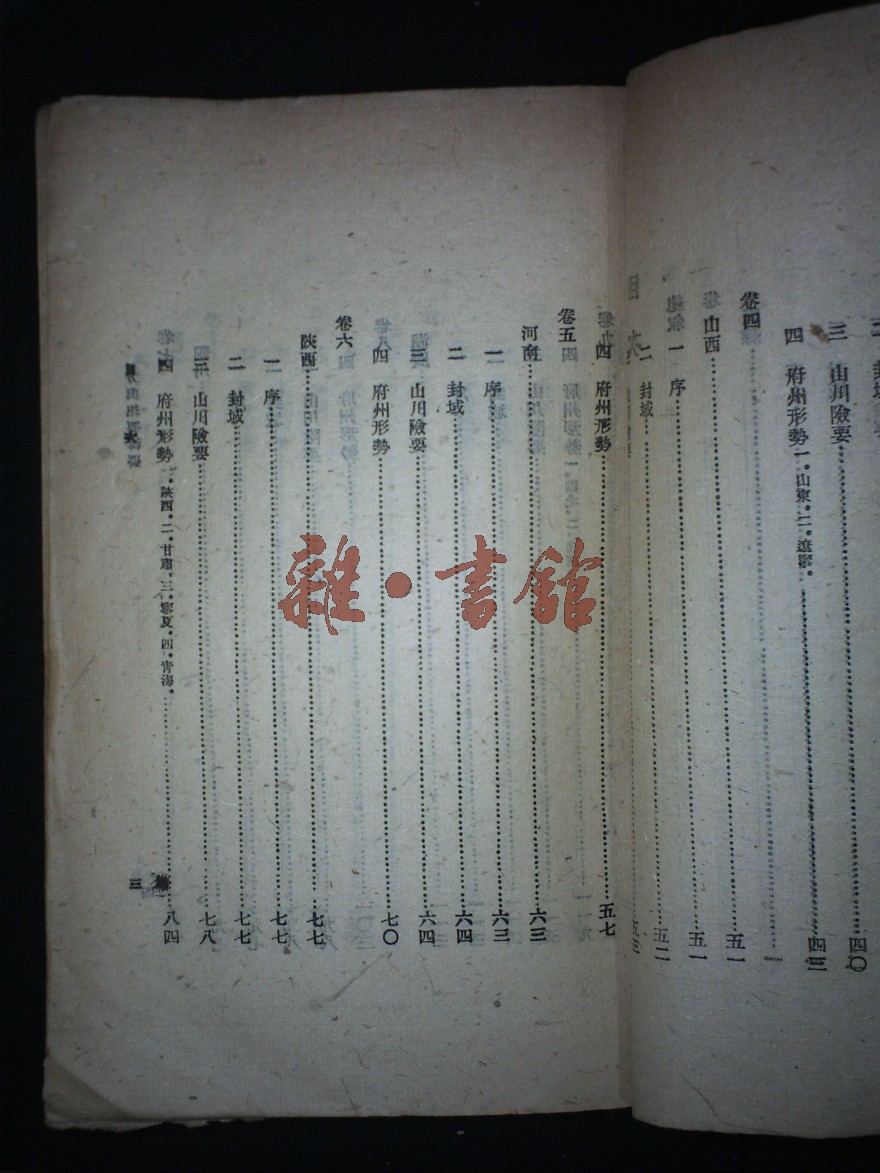 二 封域
三 山川險要……四〇
四 府州形勢 一.山東.二.遼寧.……四三
卷四
山西……五一
一 序……五二
二 封域……五三
四 府州形勢……五七
卷五
河南……六三
一 序……六三
二 封域……六四
三 山川險要……六四
四 府州形勢……七〇
卷六
陝西……七七
一 序……七七
二 封域……七七
三 山川險要……七八
四 府州形勢 一.陝西.二.甘肅.三.寧夏.四.青海.……八四
三
雜·書館